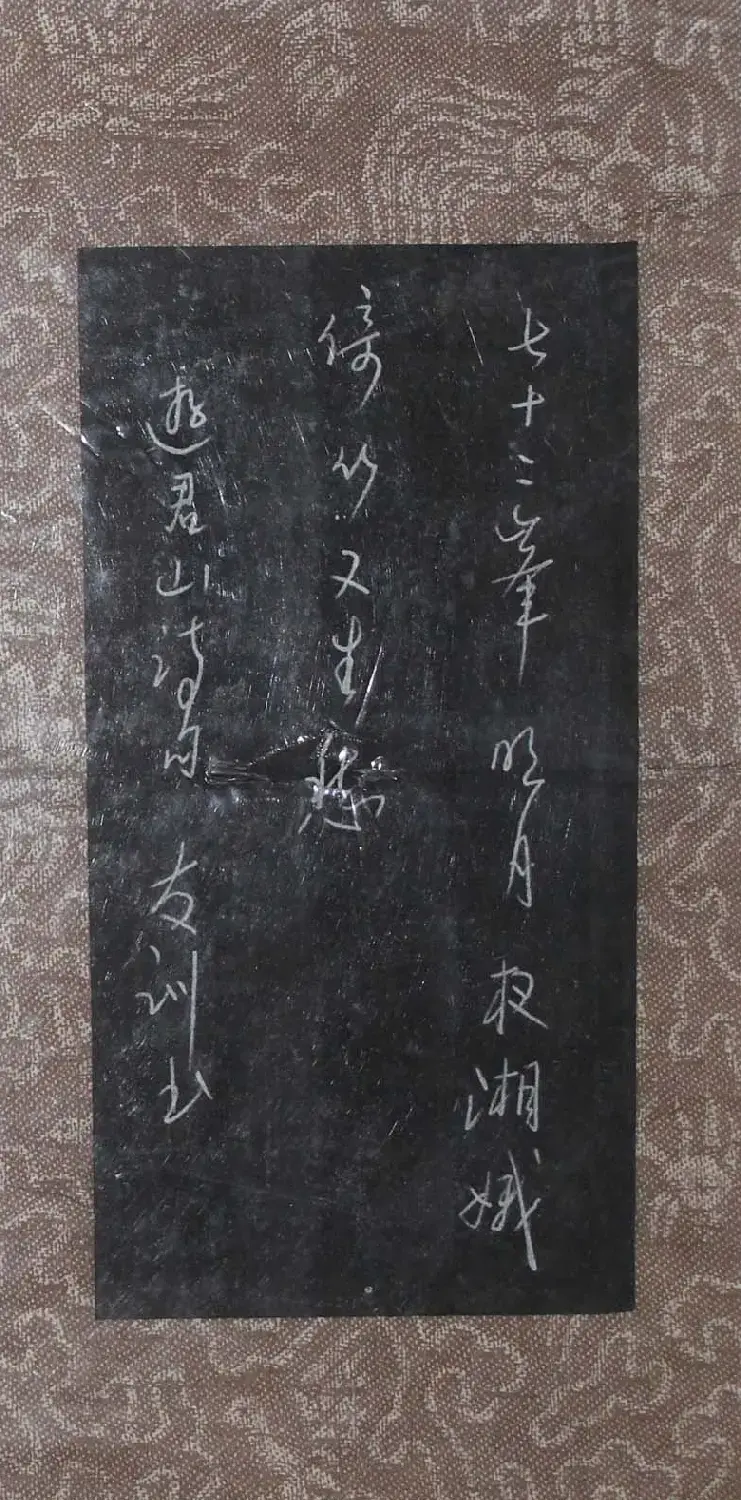 七十二峯明月夜湘娥
倚竹又生愁
遊君山詩句友訓书